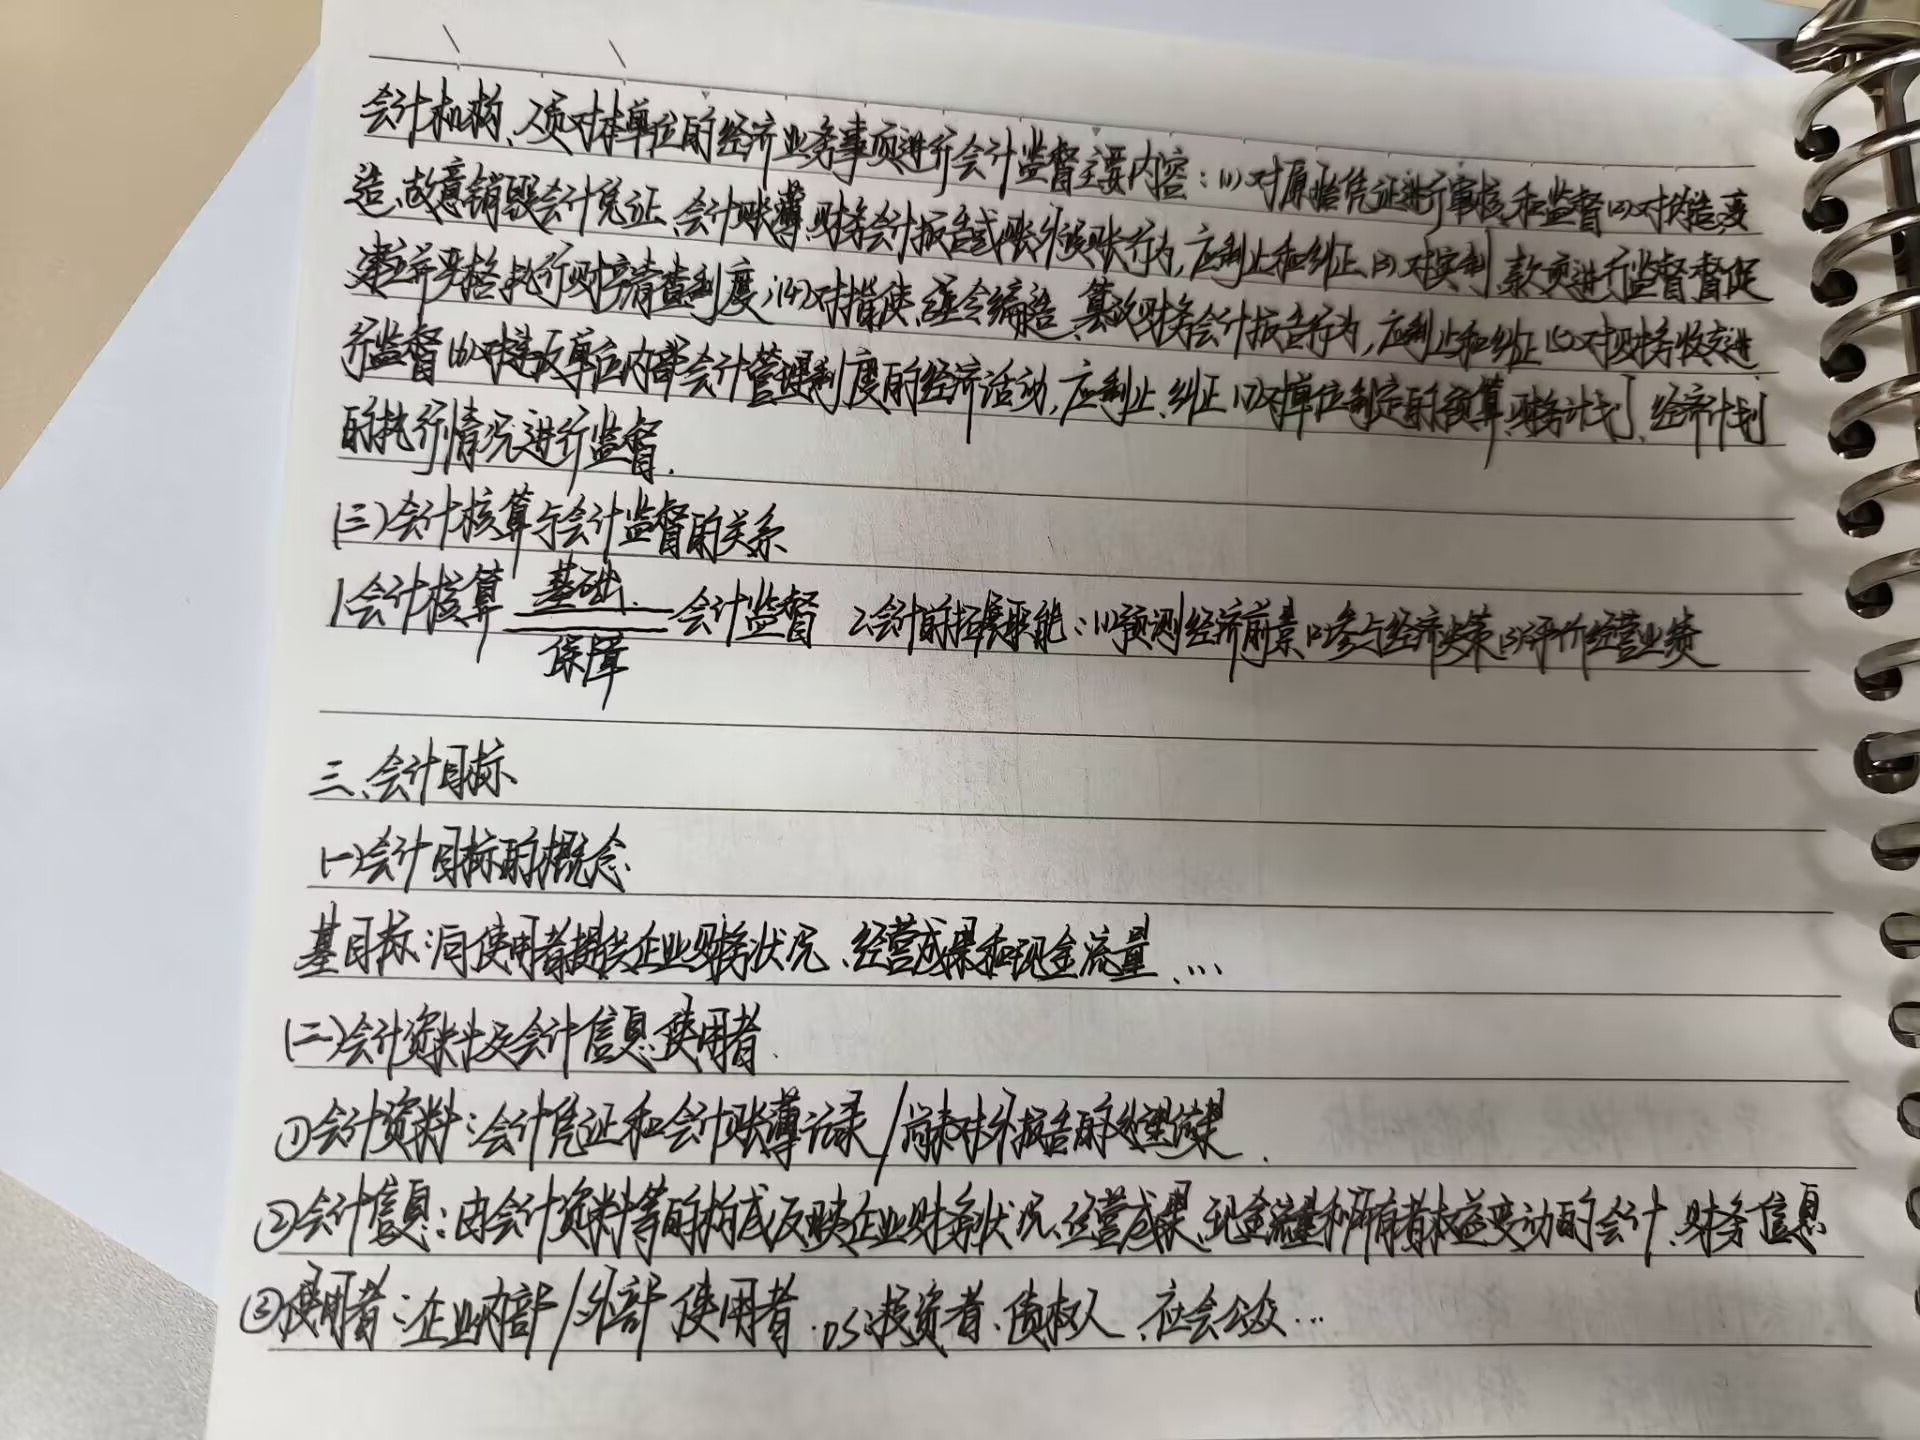 会计机构、人员对本单位的经济业务事项进行会计监督主要内容：(1)对原始凭证进行审核和监督(2)对伪造、变
造、故意销毁会计凭证、会计账薄、财务会计报告或账外设账行为，应制止和纠正、(3)对实制、款项进行监督督促
建立并严格执行财产清查制度；(4)对指使、强令编造、篡改财务会计报告行为，应制止和纠正(5)对财务收支进
行监督(6)对违反单位内部会计管理制度的经济活动，应制止、纠正(7)对单位制定的预算、财务计划、经济计划
的执行情况进行监督.
(三)会计核算与会计监督的关系
1.会计核算 基础 保障 会计监督 2.会计的拓展职能：(1)预测经济前景(2)参与经济决策(3)评价经营业绩
三、会计目标
(一)会计目标的概念
基目标：向使用者提供企业财务状况、经营成果和现金流量、…
(二)会计资料及会计信息使用者.
①会计资料：会计凭证和会计账薄记录/尚未对外报告的处理结果.
②会计信息：由会计资料等的构成反映企业财务状况、经营成果、现金流量和所有者权益变动的会计、财务信息
③使用者：企业内部/外部使用者. 投资者、债权人、社会公众…